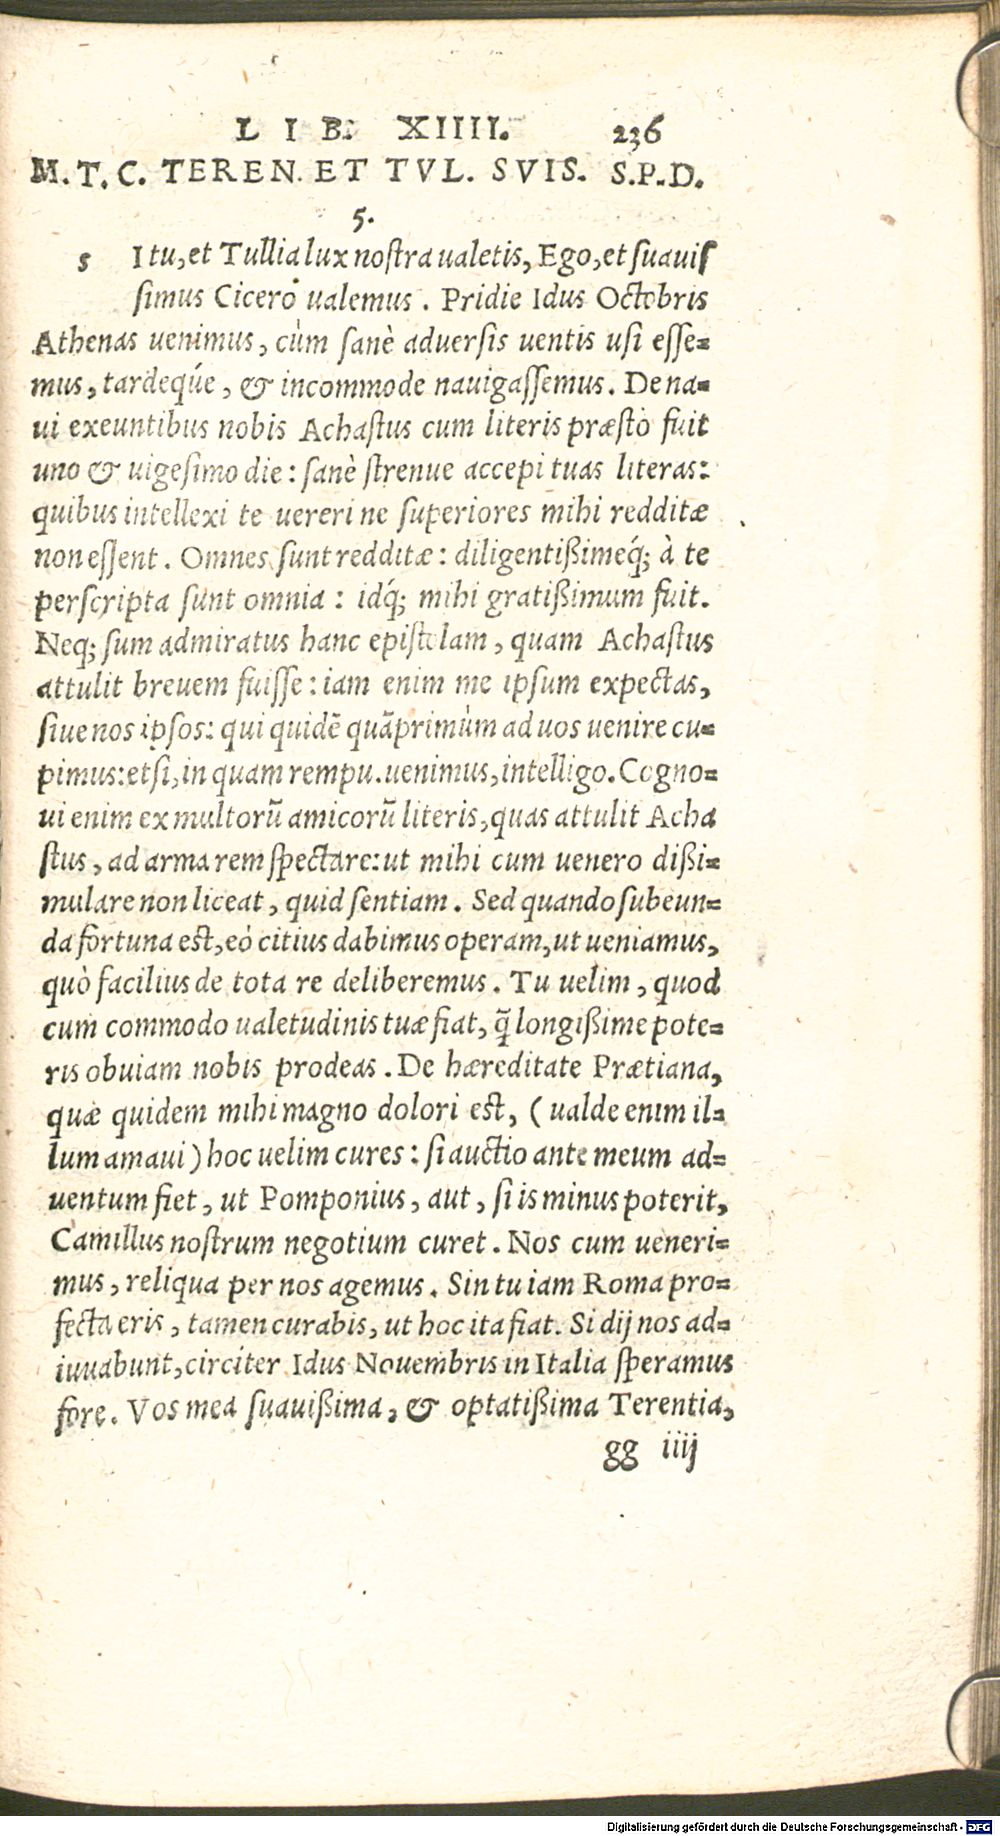 LIB. XIIII. 236
M.T.C. TEREN. ET TVL. SVIS. S.P.D.
5.
s I tu, et Tullia lux nostra ualetis, Ego, et suauiſ
simus Cicero ualemus. Pridie Idus Octobris
Athenas uenimus, cùm ſanè aduerſis uentis uſi eſſe=
mus, tardeq́ue, & incommode nauigaſſemus. De na=
ui exeuntibus nobis Achaſtus cum literis præſtò fuit
uno & uigeſimo die: ſanè ſtrenue accepi tuas literas:
quibus intellexi te uereri ne ſuperiores mihi redditæ
non eſſent. Omnes ſunt redditæ: diligentißimeq́; à te
perſcripta ſunt omnia: idq́; mihi gratißimum fuit.
Neq; ſum admiratus hanc epiſtolam, quam Achaſtus
attulit breuem fuiſſe: iam enim me ipſum expectas,
ſiue nos ipſos: qui quidē quāprimùm ad uos uenire cu=
pimus: etſi, in quam rempu. uenimus, intelligo. Cogno=
ui enim ex multorū amicorū literis, quas attulit Acha
ſtus, ad arma rem ſpectare: ut mihi cum uenero dißi=
mulare non liceat, quid ſentiam. Sed quando ſubeun=
da fortuna est, eò citius dabimus operam, ut ueniamus,
quò facilius de tota re deliberemus. Tu uelim, quod
cum commodo ualetudinis tuæ fiat, q̃ longißime pote=
ris obuiam nobis prodeas. De hæreditate Prætiana,
quæ quidem mihi magno dolori est, (ualde enim il=
lum amaui) hoc uelim cures: ſi auctio ante meum ad=
uentum fiet, ut Pomponius, aut, ſi is minus poterit,
Camillus noſtrum negotium curet. Nos cum ueneri=
mus, reliqua per nos agemus. Sin tu iam Roma pro=
fecta eris, tamen curabis, ut hoc ita fiat. Si dij nos ad=
iuuabunt, circiter Idus Nouembris in Italia ſperamus
fore. Vos mea ſuauißima, & optatißima Terentia,
gg iiij
Digitalisierung gefördert durch die Deutsche Forschungsgemeinschaft - DFG